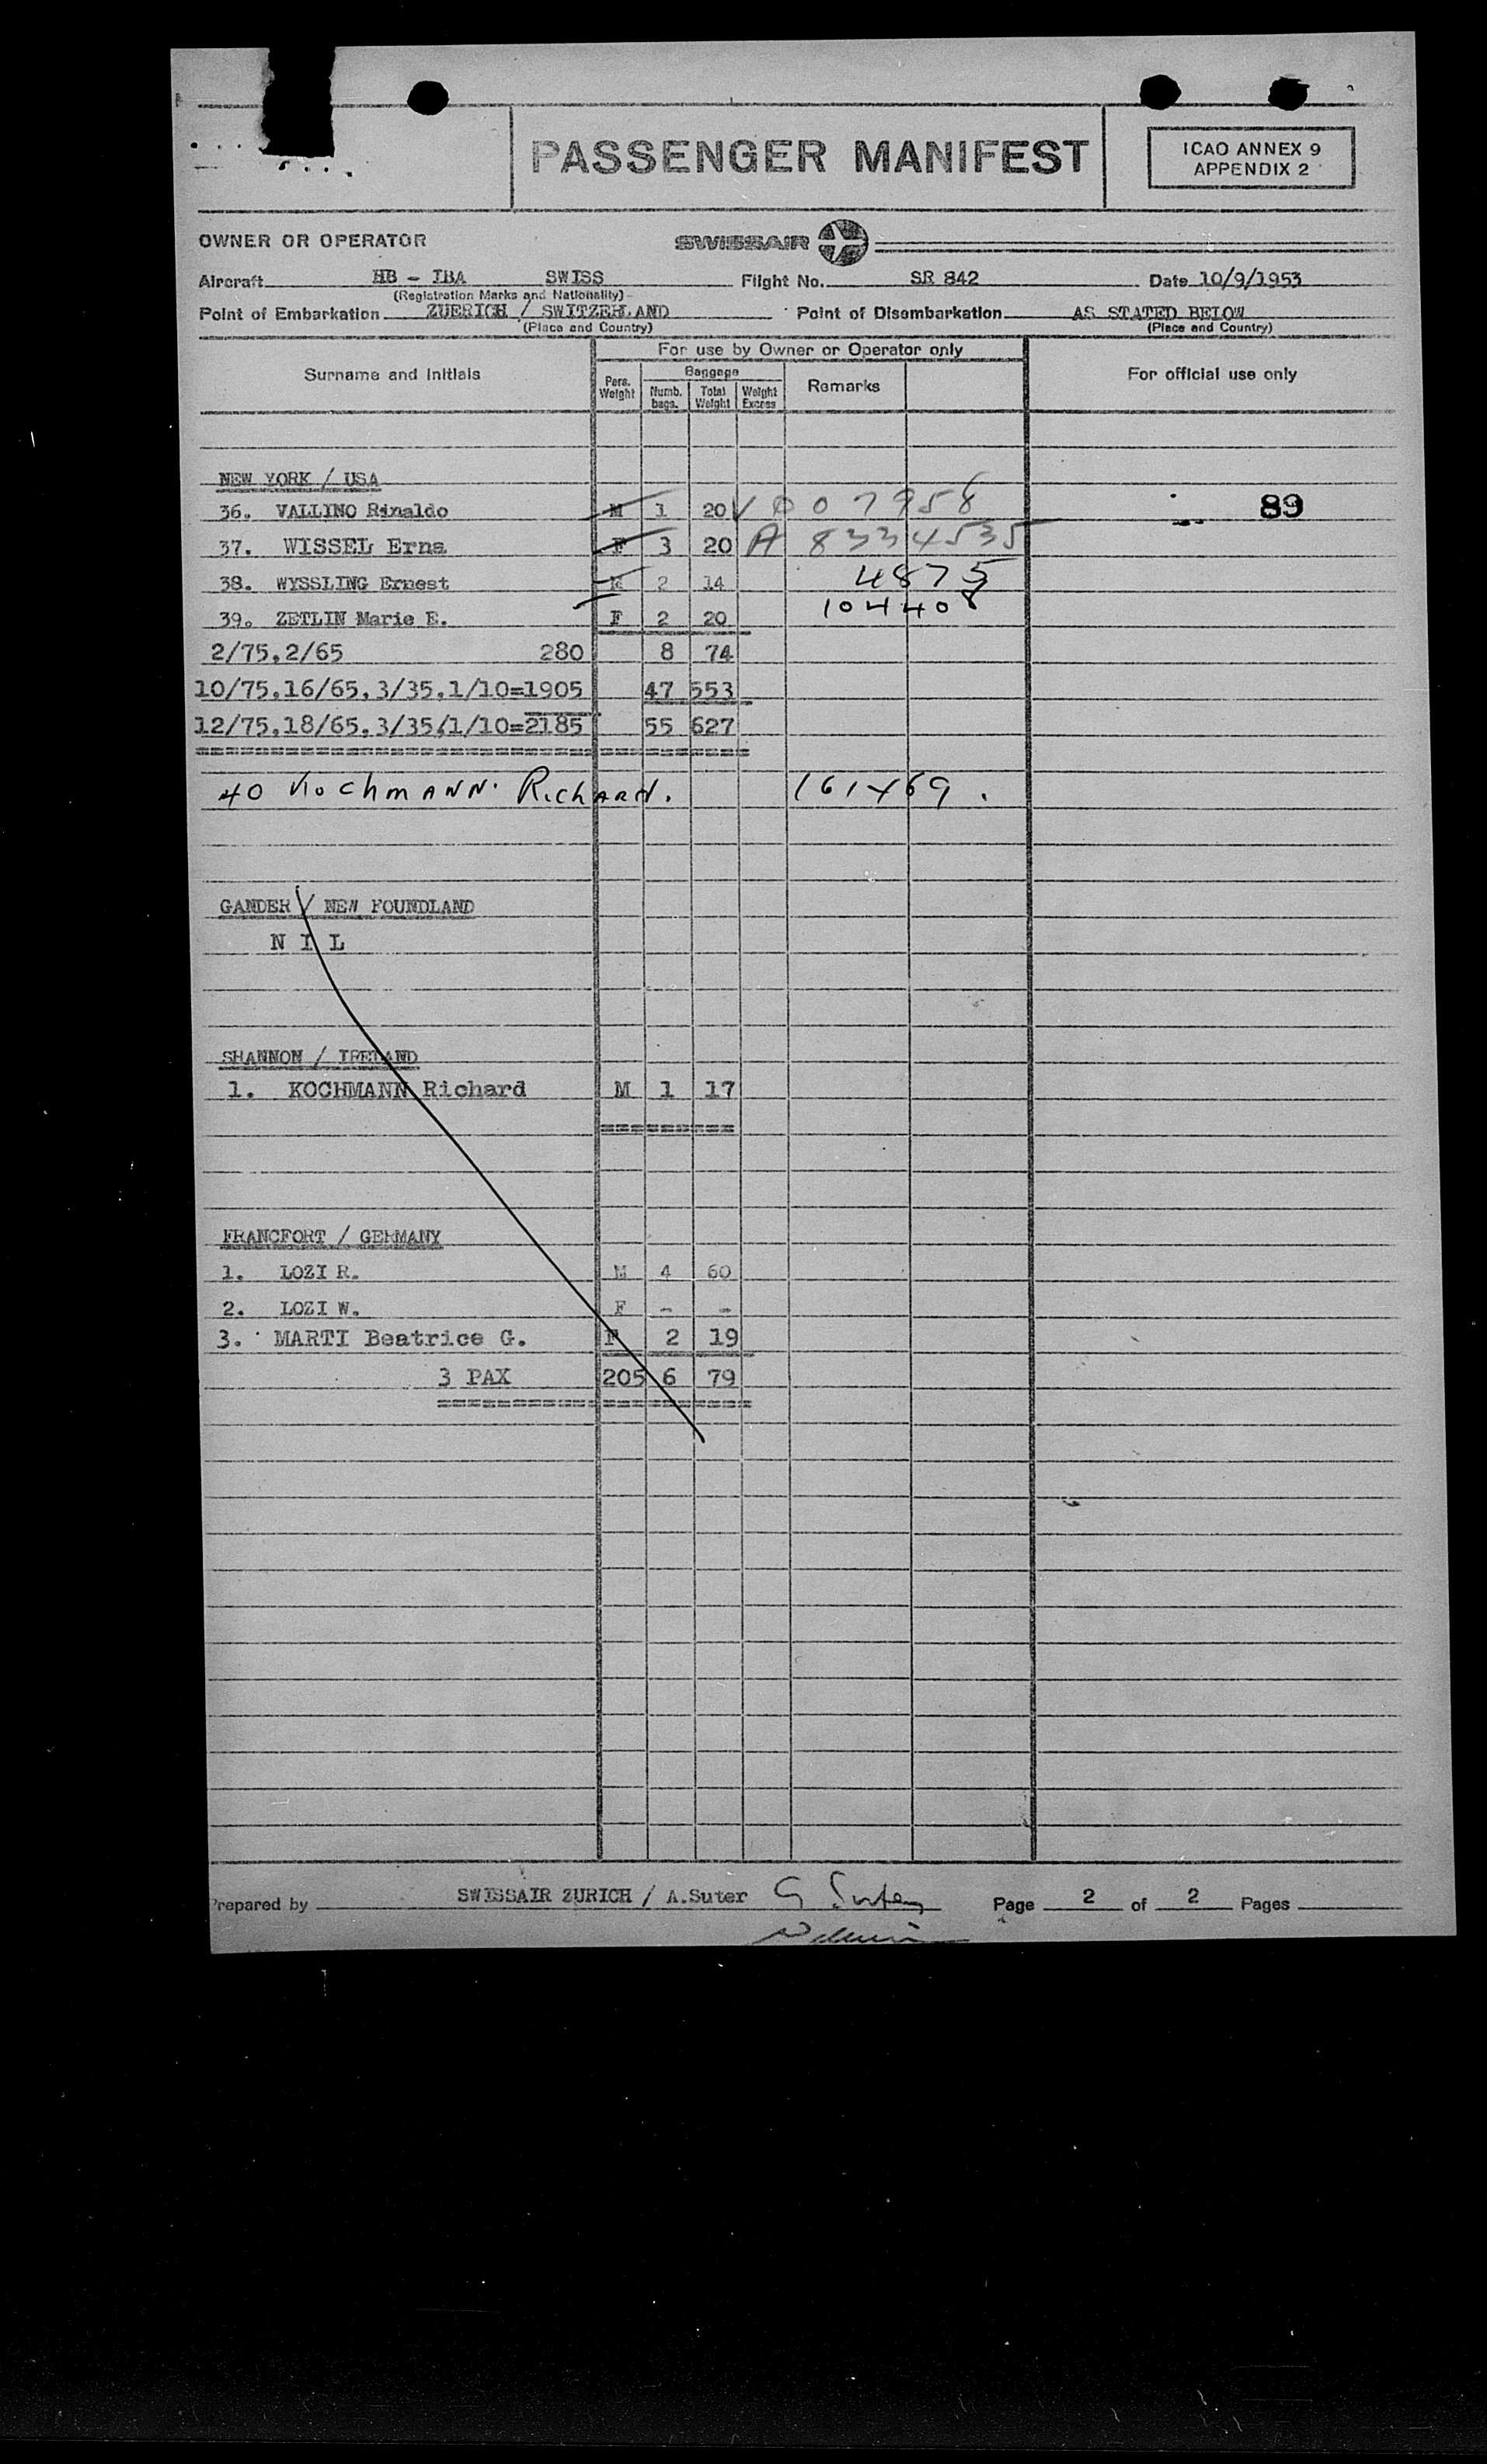 PASSENGER MANIFEST
ICAO ANNEX 9
APPENDIX 2
OWNER OR OPERATOR
SWISSAIR
Aircraft HB - IBA SWISS Flight No. SR 842 Date 10/9/1953
(Registration Marks and Nationality)
Point of Embarkation ZUERICH / SWITZERLAND Point of Disembarkation AS STATED BELOW
(Place and Country) (Place and Country)
For use by Owner or Operator only
Surname and Initials Pers. Weight Baggage Numb. bags. Total Weight Weight Excess Remarks For official use only
NEW YORK / USA
36. VALLINO Rinaldo M 1 20 V 0007958 89
37. WISSEL Erna F 3 20 A 8334535
38. WYSSLING Ernest M 2 14 4875
39. ZETLIN Marie E. F 2 20 104408
2/75,2/65 280 8 74
10/75,16/65,3/35,1/10=1905 47 553
12/75,18/65,3/35,1/10=2185 55 627
40 KochmANN. RichARd. 161469.
GANDER / NEW FOUNDLAND
N I L
SHANNON / IRELAND
1. KOCHMANN Richard M 1 17
FRANCFORT / GERMANY
1. LOZI R. M 4 60
2. LOZI W. F - -
3. MARTI Beatrice G. F 2 19
3 PAX 205 6 79
Prepared by SWISSAIR ZURICH / A.Suter Page 2 of 2 Pages